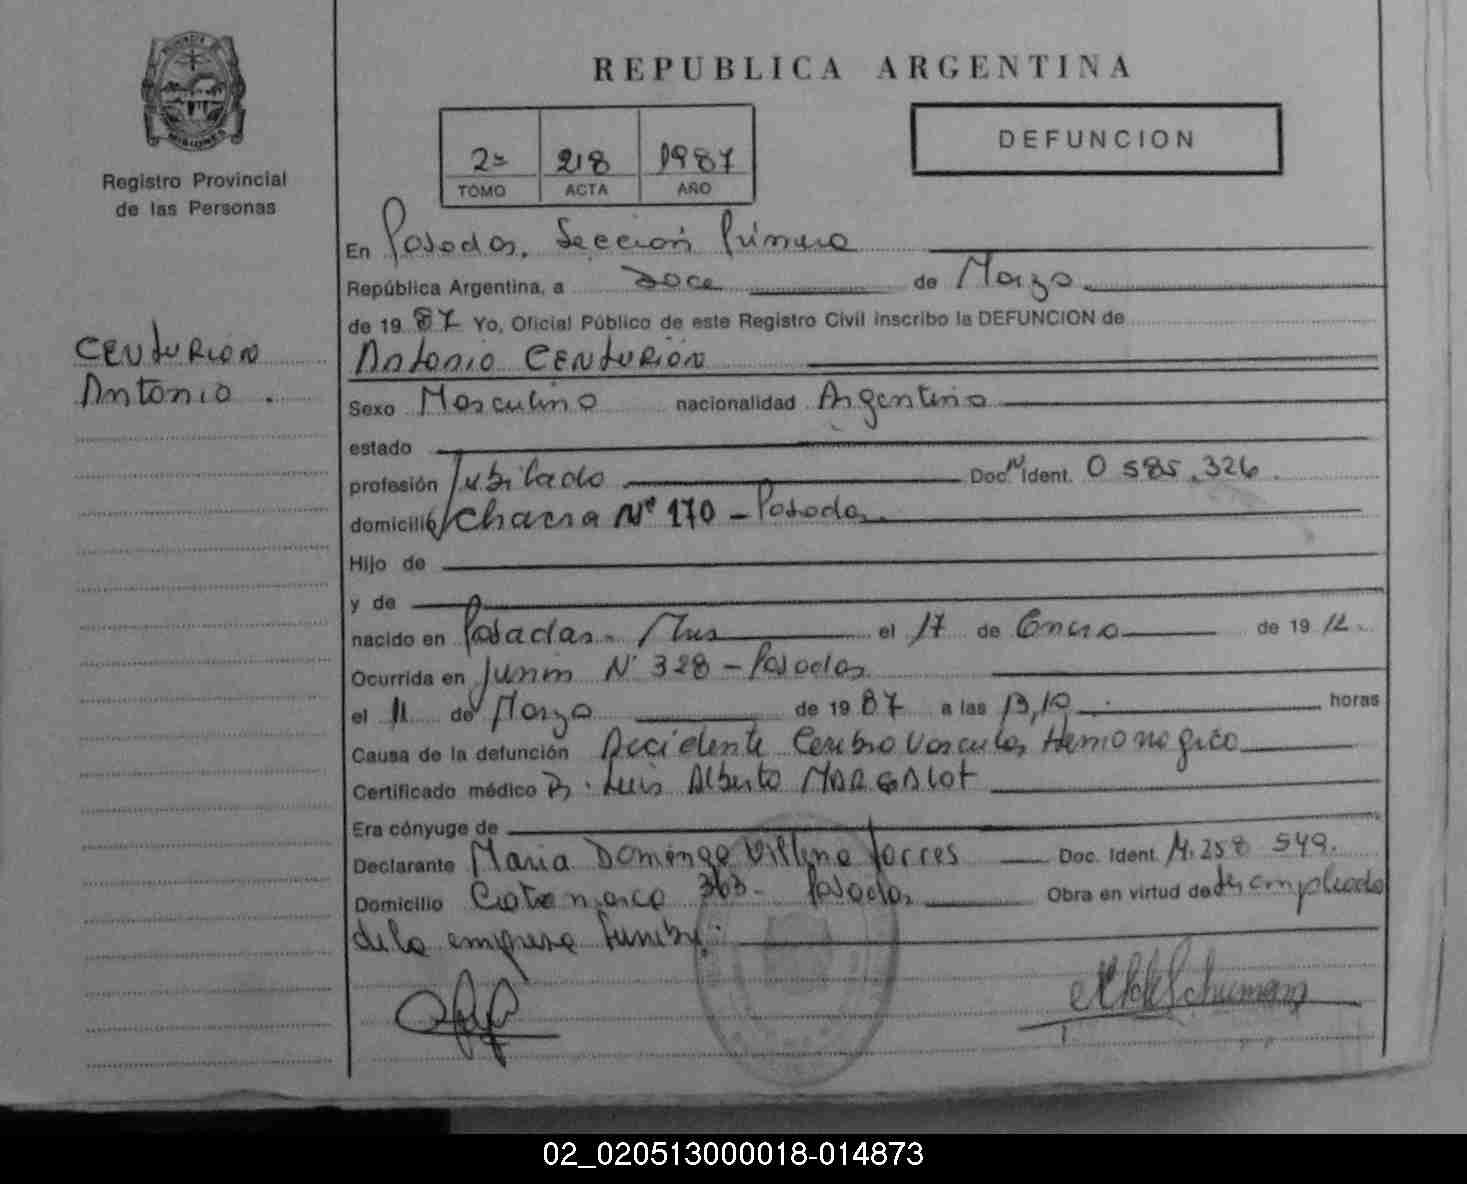 REPUBLICA ARGENTINA
DEFUNCION
2º 218 1987
TOMO ACTA AÑO
Registro Provincial
de las Personas
CENTURION
Antonio.
En Posadas, Sección Primera
República Argentina, a Doce de Marzo
de 1987 Yo, Oficial Público de este Registro Civil inscribo la DEFUNCION de
Antonio CENTURION
Sexo Masculino nacionalidad Argentino
estado
profesión Jubilado Doc. Nº Ident. 0 585.326.
domicilio Chacra Nº 170 - Posadas
Hijo de
y de
nacido en Posadas - Mnes el 17 de Enero de 1912.
Ocurrida en Junin Nº 328 - Posadas
el 11 de Marzo de 1987 a las 13,10 horas
Causa de la defunción Accidente Cerebro Vascular Hemorragico
Certificado médico Dr. Luis Alberto MARGALOT
Era cónyuge de
Declarante Maria Dominga Villena Torres Doc. Ident. 14.258 549.
Domicilio Catamarca 363 - Posadas Obra en virtud de ser empleada
de la empresa funebre.
Schumann
02_020513000018-014873